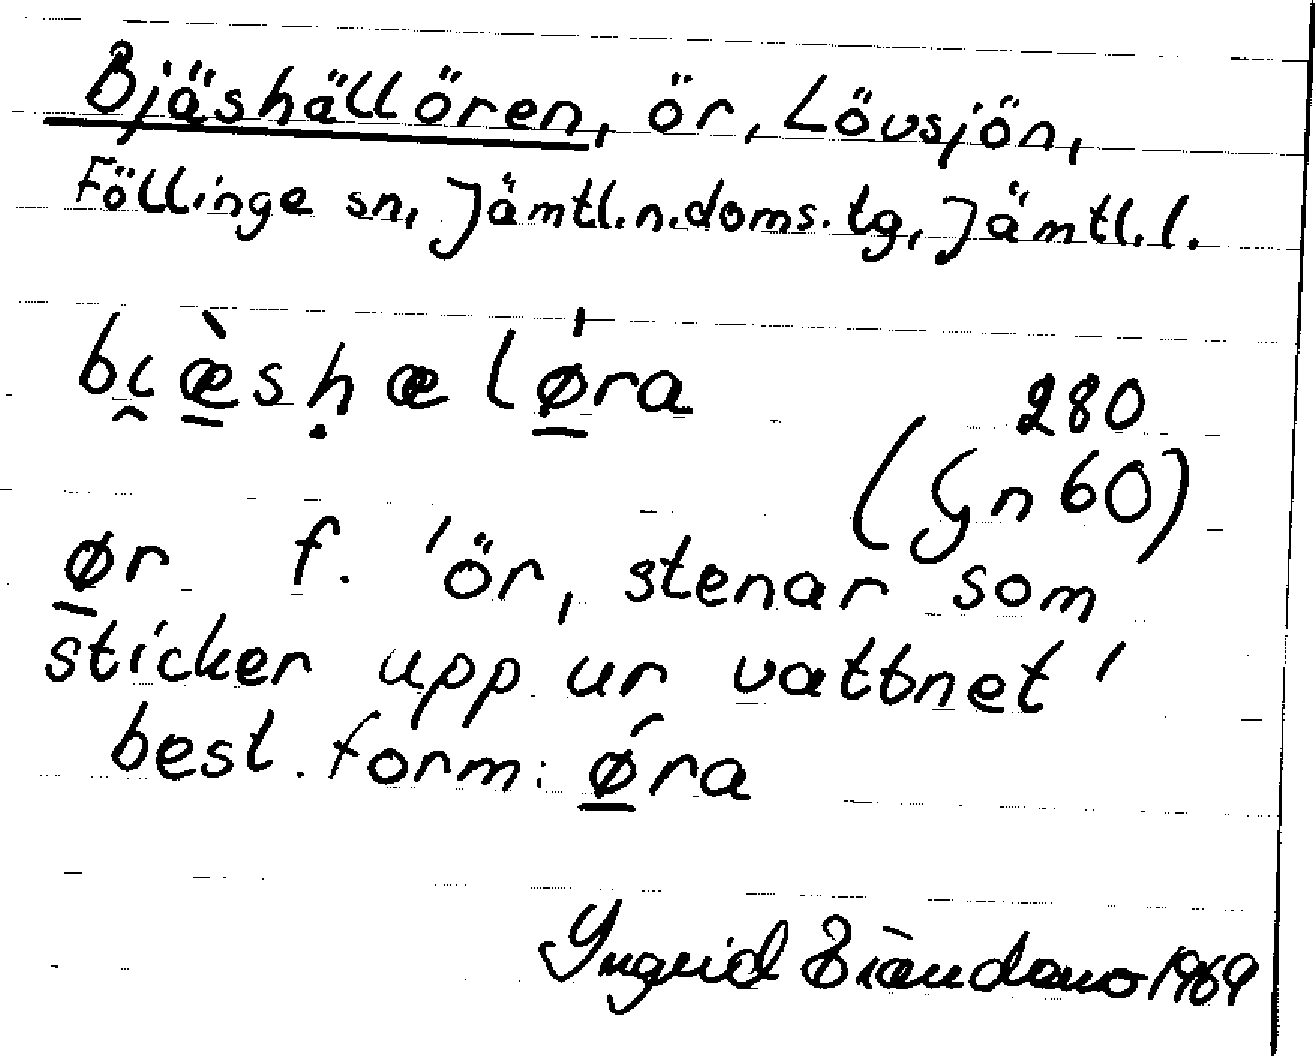 Bjäshällören, ör, Lövsjön,
Föllinge sn, Jämtl.n.doms.tg, Jämtl.l.
bi̯æ̠̀sḥælǿ̠ra
280
(Gn 60)
ø̠r f. 'ör, stenar som
sticker upp ur vattnet'
best. form: ǿ̠ra
Ingrid 1969